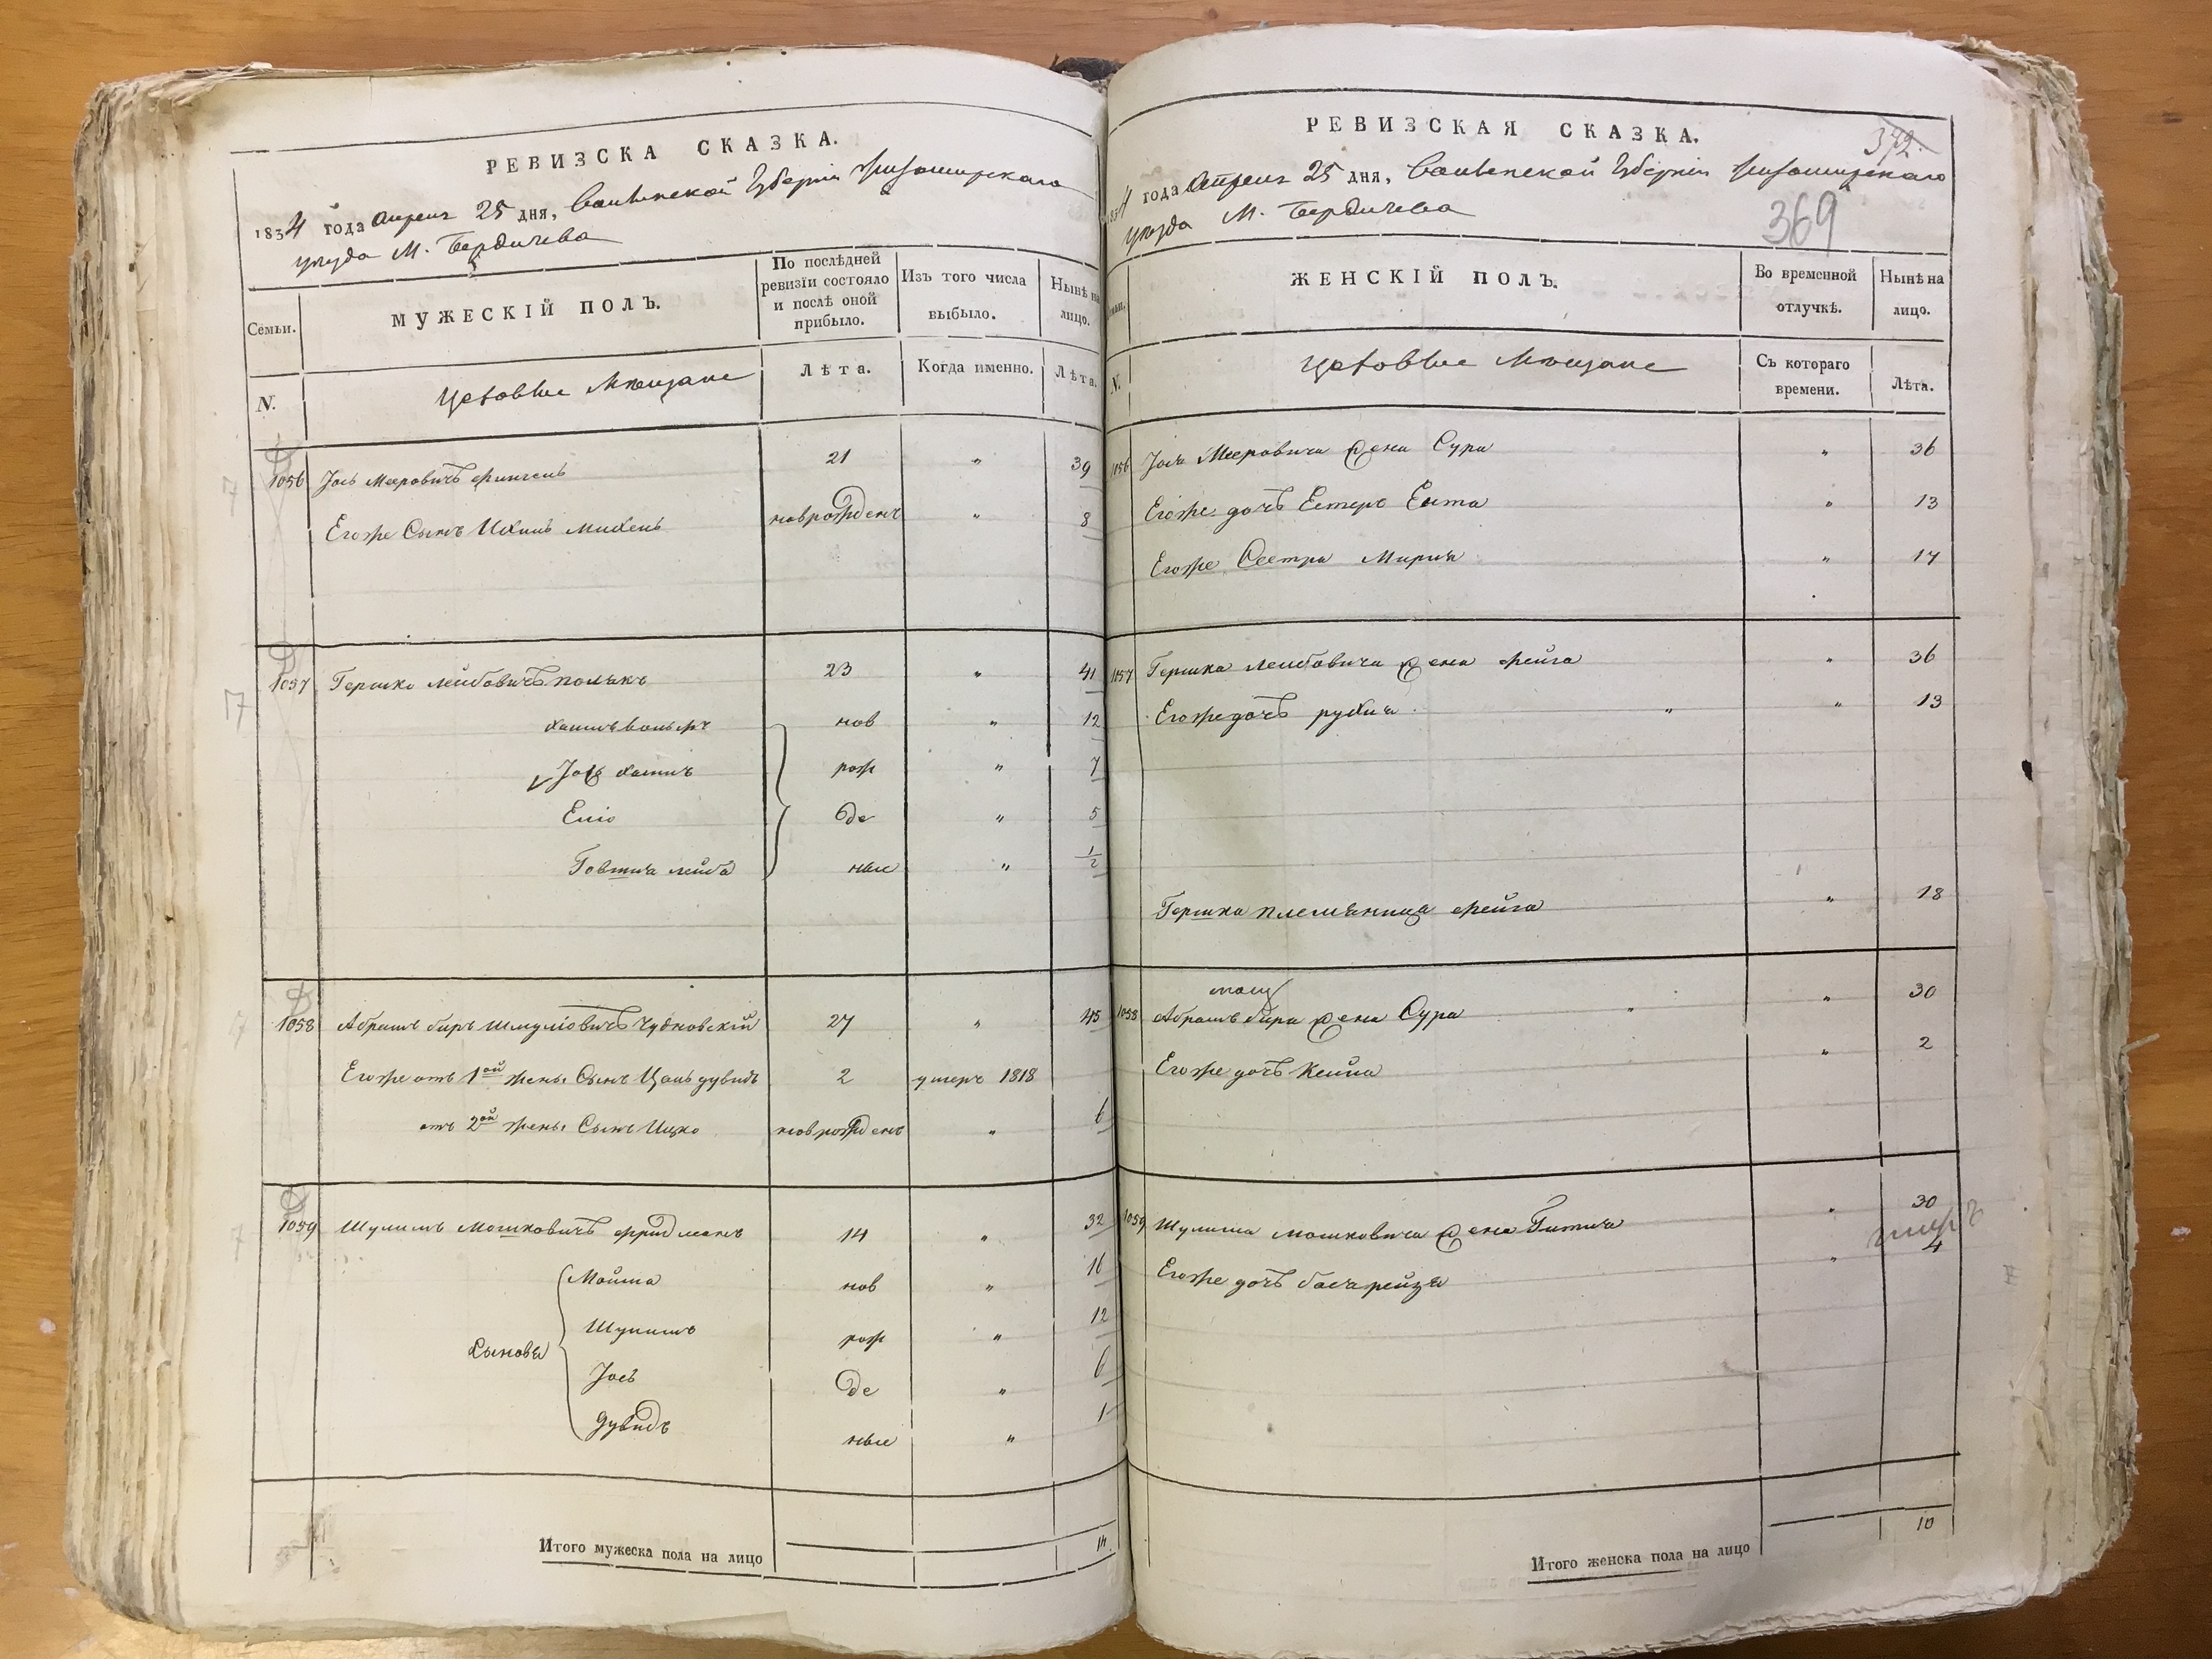 РЕВИЗСКА СКАЗКА.
1834 года Апреля 25 дня, Волынской Губернии Житомирского
уезда М. Бердичева
Семьи.
МУЖЕСКІЙ ПОЛЪ.
По послѣдней ревизіи состояло и послѣ оной прибыло.
Изъ того числа выбыло.
Нынѣ на лицо.
N.
Цеховые Мещане
Лѣта.
Когда именно.
Лѣта.
1056 Іось Мееровичъ 21 " 39
Егоже Сынъ Ихиль Михель новорожденъ " 8
1057 Гершко Лейбовичъ Полякъ 23 " 41
нов " 12
Хаимъ рож " 7
Еліо де " 5
Лейба ные " 1/2
1058 Абрамъ Беръ Шмуліовичъ Чудновскій 27 " 45
Егоже отъ 1ой жены Сынъ дувидъ 2 умеръ 1818
отъ 2ой жены Сынъ Ицко новорожденъ " 6
1059 Шулимъ Мошковичъ Фридманъ 14 " 32
нов " 16
Сыновья
рож " 12
Іосъ де "
Дувидъ ные " 1
Итого мужеска пола на лицо
РЕВИЗСКАЯ СКАЗКА.
372.
1834 года Апреля 25 дня, Волынской Губерніи Житомирского
уезда М. Бердичева
369
Семьи.
ЖЕНСКІЙ ПОЛЪ.
Во временной отлучкѣ.
Нынѣ на лицо.
N.
Цеховые Мещане
Съ котораго времени.
Лѣта.
1056 Іося Мееровича жена Сура " 36
Егоже дочь Естеръ Ента " 13
Егоже Сестра Мирия " 17
1057 Гершка Лейбовича жена Фейга " 36
Егоже дочь Рухля " " 13
Гершка племяница Фейга " 18
1058 Абрамъ Бера жена Сура " " 30
Егоже дочь Кейла " 2
1059 Шулима Мошковича жена Гитля " 30
Егоже дочь Бася рейзя " 4
Итого женска пола на лицо 10